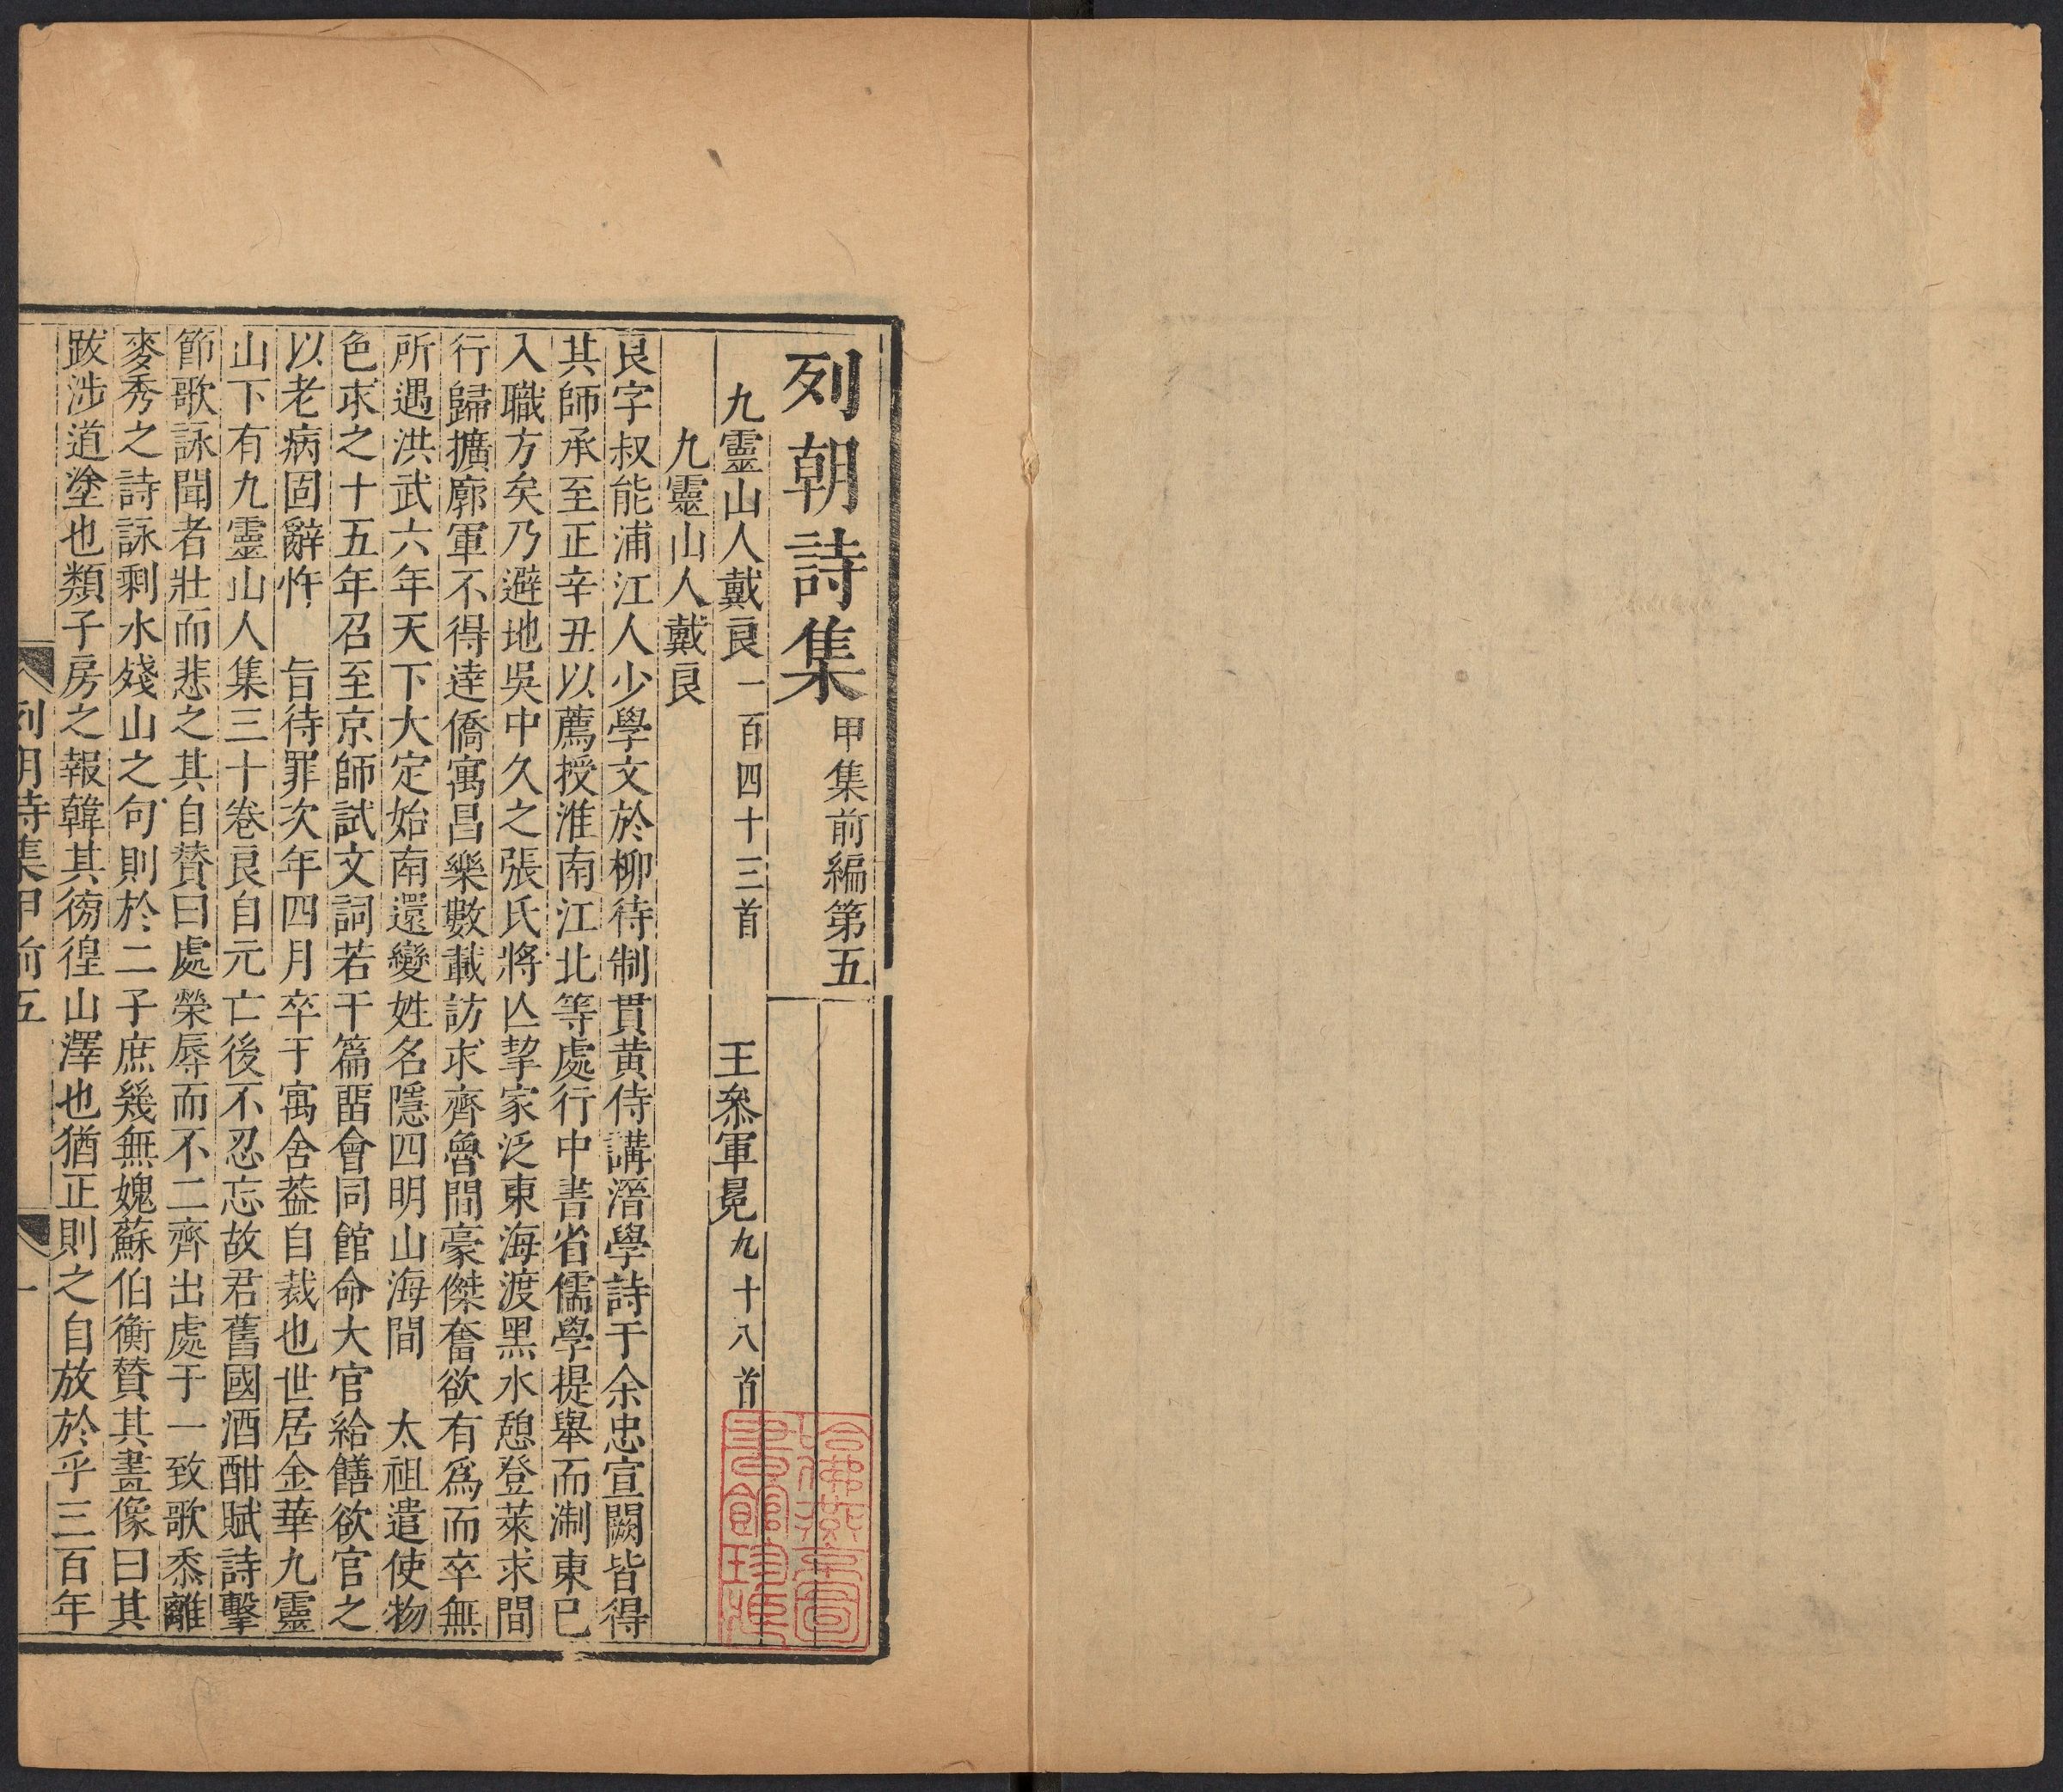 列朝詩集甲集前編第五
九靈山人戴良一百四十三首 王叅軍冕九十八首
九靈山人戴良
良字叔能浦江人少學文於柳待制貫黄侍講溍學詩于余忠宣闕皆得
其師承至正辛丑以薦授淮南江北等處行中書省儒學提舉而淛東已
入職方矣乃避地吳中久之張氏將亾挈家泛東海渡黑水憩登萊求間
行歸擴廓軍不得達僑寓昌樂數載訪求齊魯間豪傑奮欲有爲而卒無
所遇洪武六年天下大定始南還變姓名隱四明山海間 太祖遣使物
色求之十五年召至京師試文詞若干篇畱會同館命大官給饍欲官之
以老病固辭忤 旨待罪次年四月卒于寓舍葢自裁也世居金華九靈
山下有九靈山人集三十卷良自元亡後不忍忘故君舊國酒酣賦詩擊
節歌詠聞者壯而悲之其自贊曰處榮辱而不二齊出處于一致歌黍離
麥秀之詩詠剩水殘山之句則於二子庶幾無媿蘇伯衡贊其畫像曰其
跋涉道塗也類子房之報韓其徬徨山澤也猶正則之自放於乎三百年
列朝詩集甲前五 一
哈佛燕京圖
書館珍藏